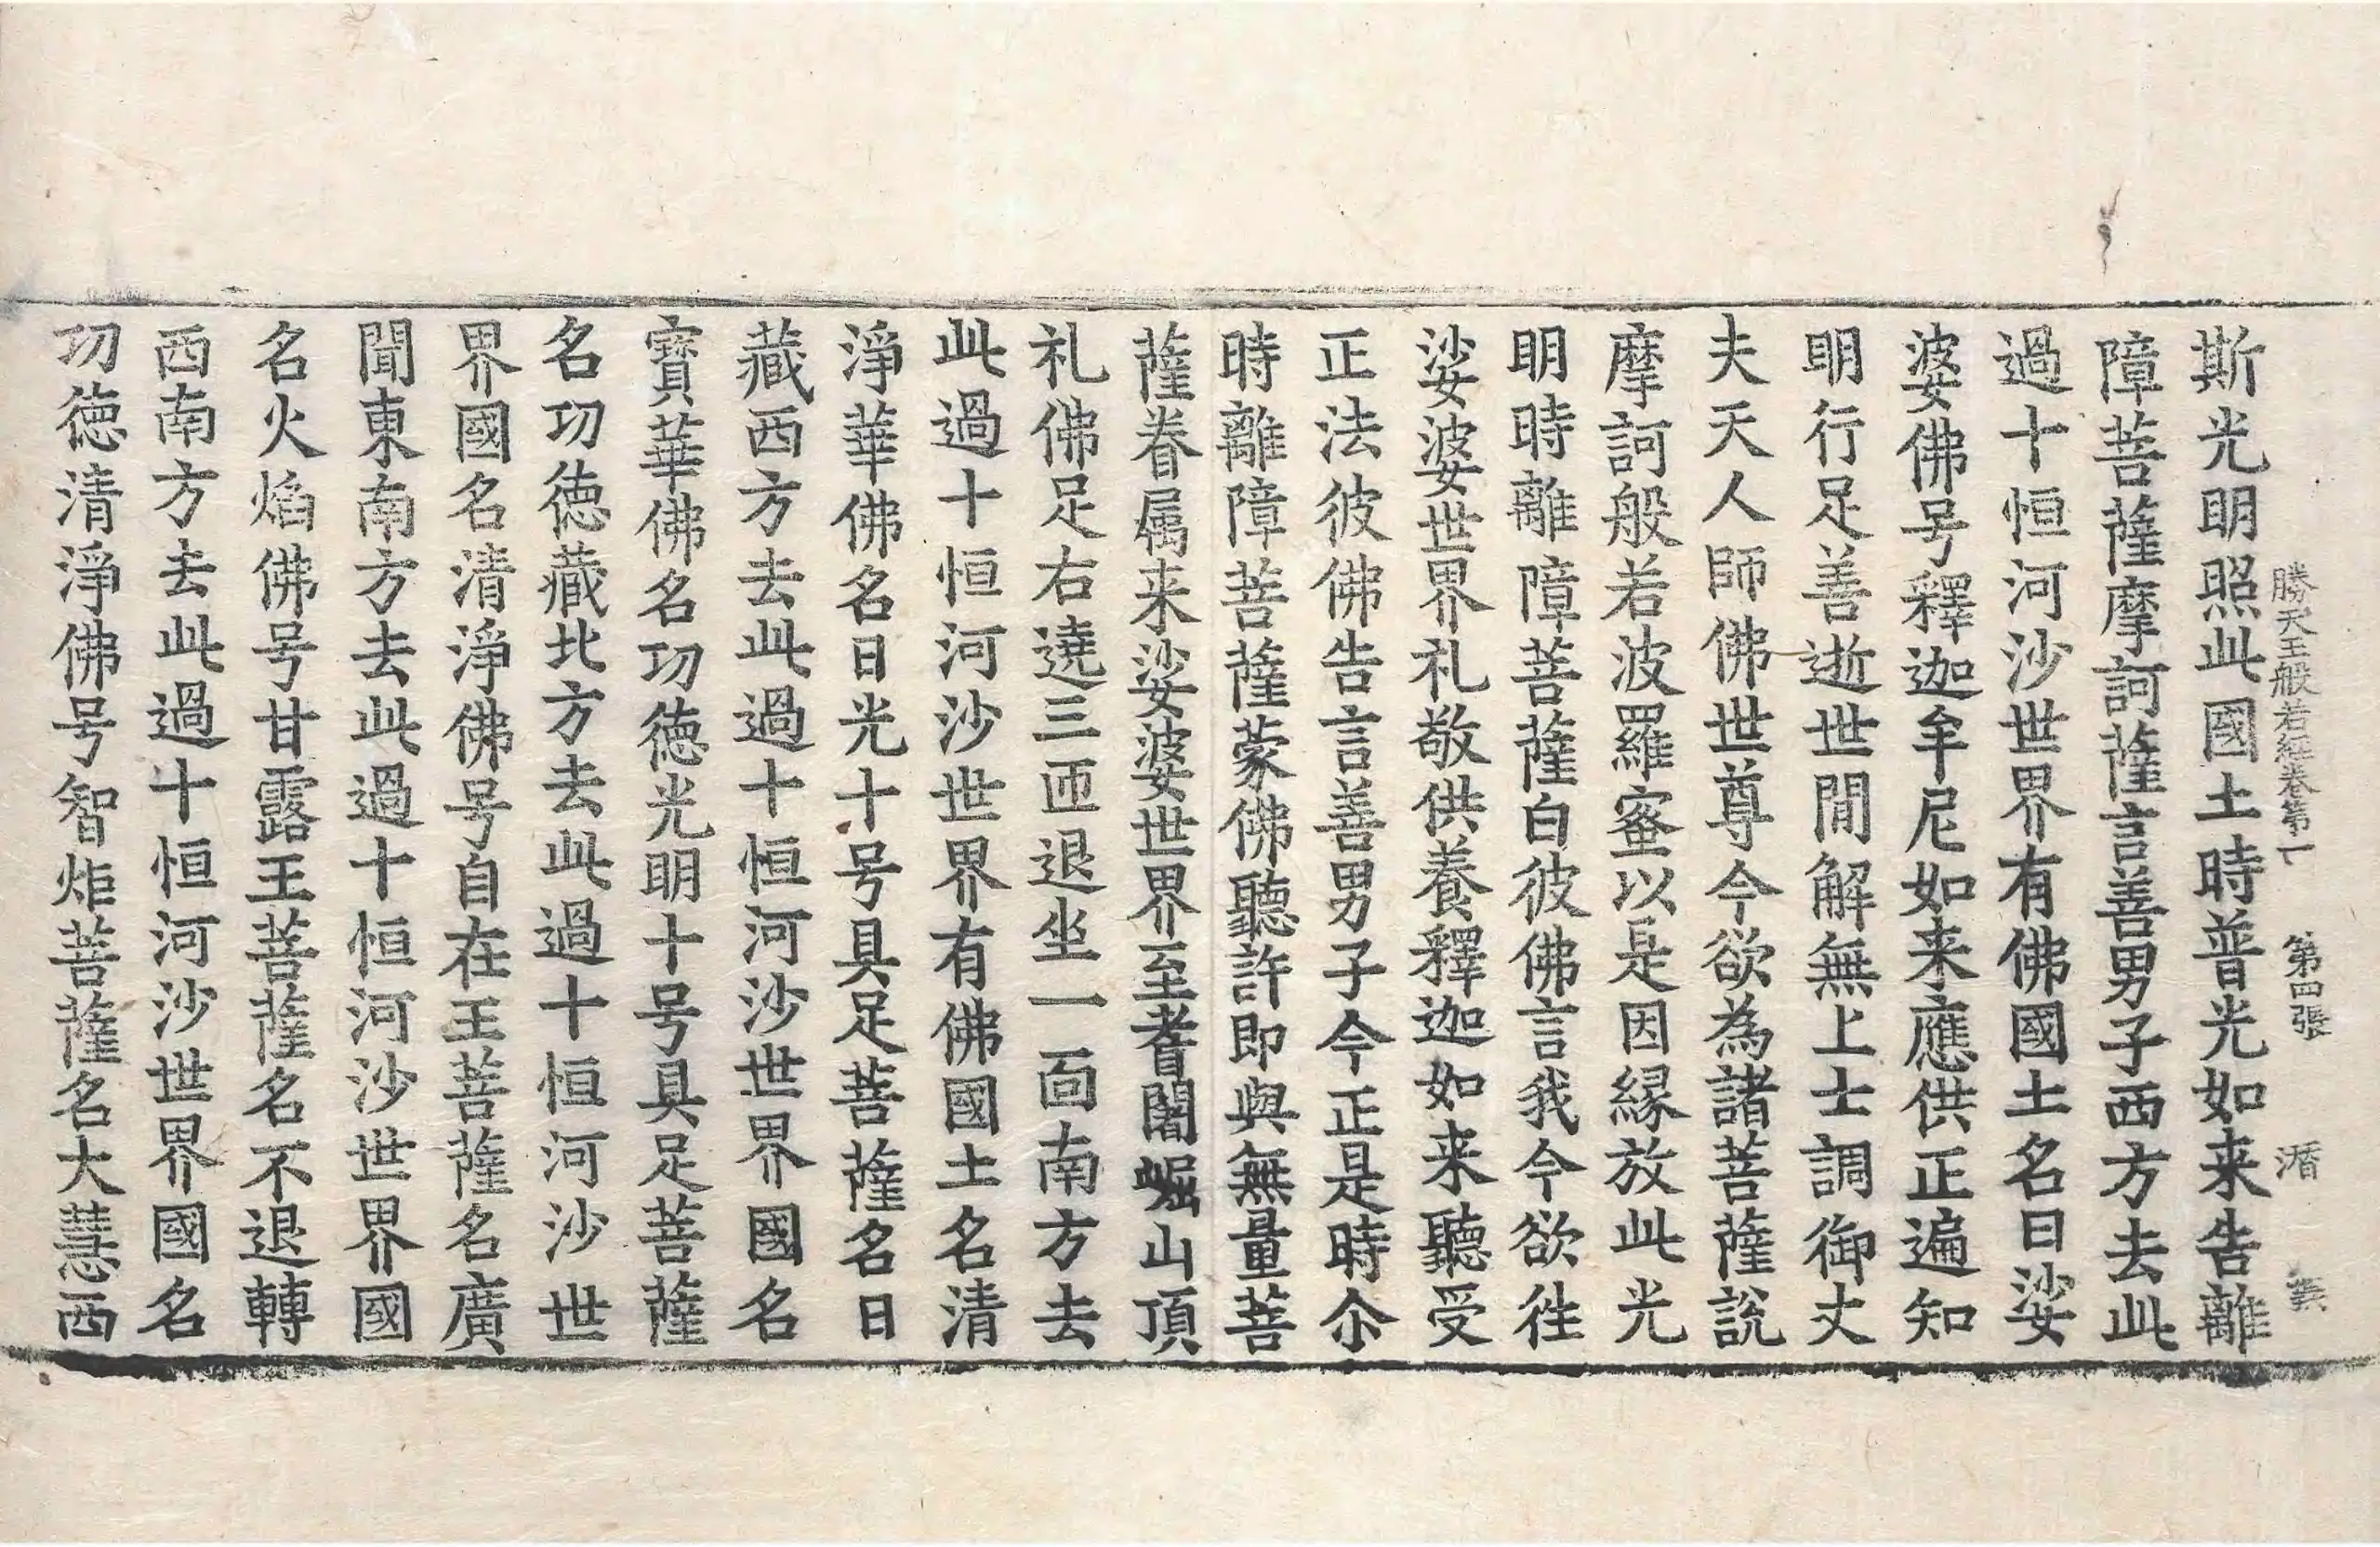 勝天王般若經卷第一 第四張 㴞
斯光明照此國土時普光如来告離
障菩薩摩訶薩言善男子西方去此
過十恒河沙世界有佛國土名曰娑
婆佛号釋迦牟尼如来應供正遍知
明行足善逝世閒解無上士調御丈
夫天人師佛世尊今欲為諸菩薩說
摩訶般若波羅蜜以是因緣放此光
明時離障菩薩白彼佛言我今欲徃
娑婆世界礼敬供養釋迦如来聽受
正法彼佛告言善男子今正是時尒
時離障菩薩蒙佛聽許即與無量菩
薩眷属来娑婆世界至耆闍崛山頂
礼佛足右遶三匝退坐一面南方去
此過十恒河沙世界有佛國土名清
淨華佛名日光十号具足菩薩名日
藏西方去此過十恒河沙世界國名
寶華佛名功德光明十号具足菩薩
名功德藏北方去此過十恒河沙世
界國名清淨佛号自在王菩薩名廣
聞東南方去此過十恒河沙世界國
名火焰佛号甘露王菩薩名不退轉
西南方去此過十恒河沙世界國名
功德清淨佛号智炬菩薩名大慧西